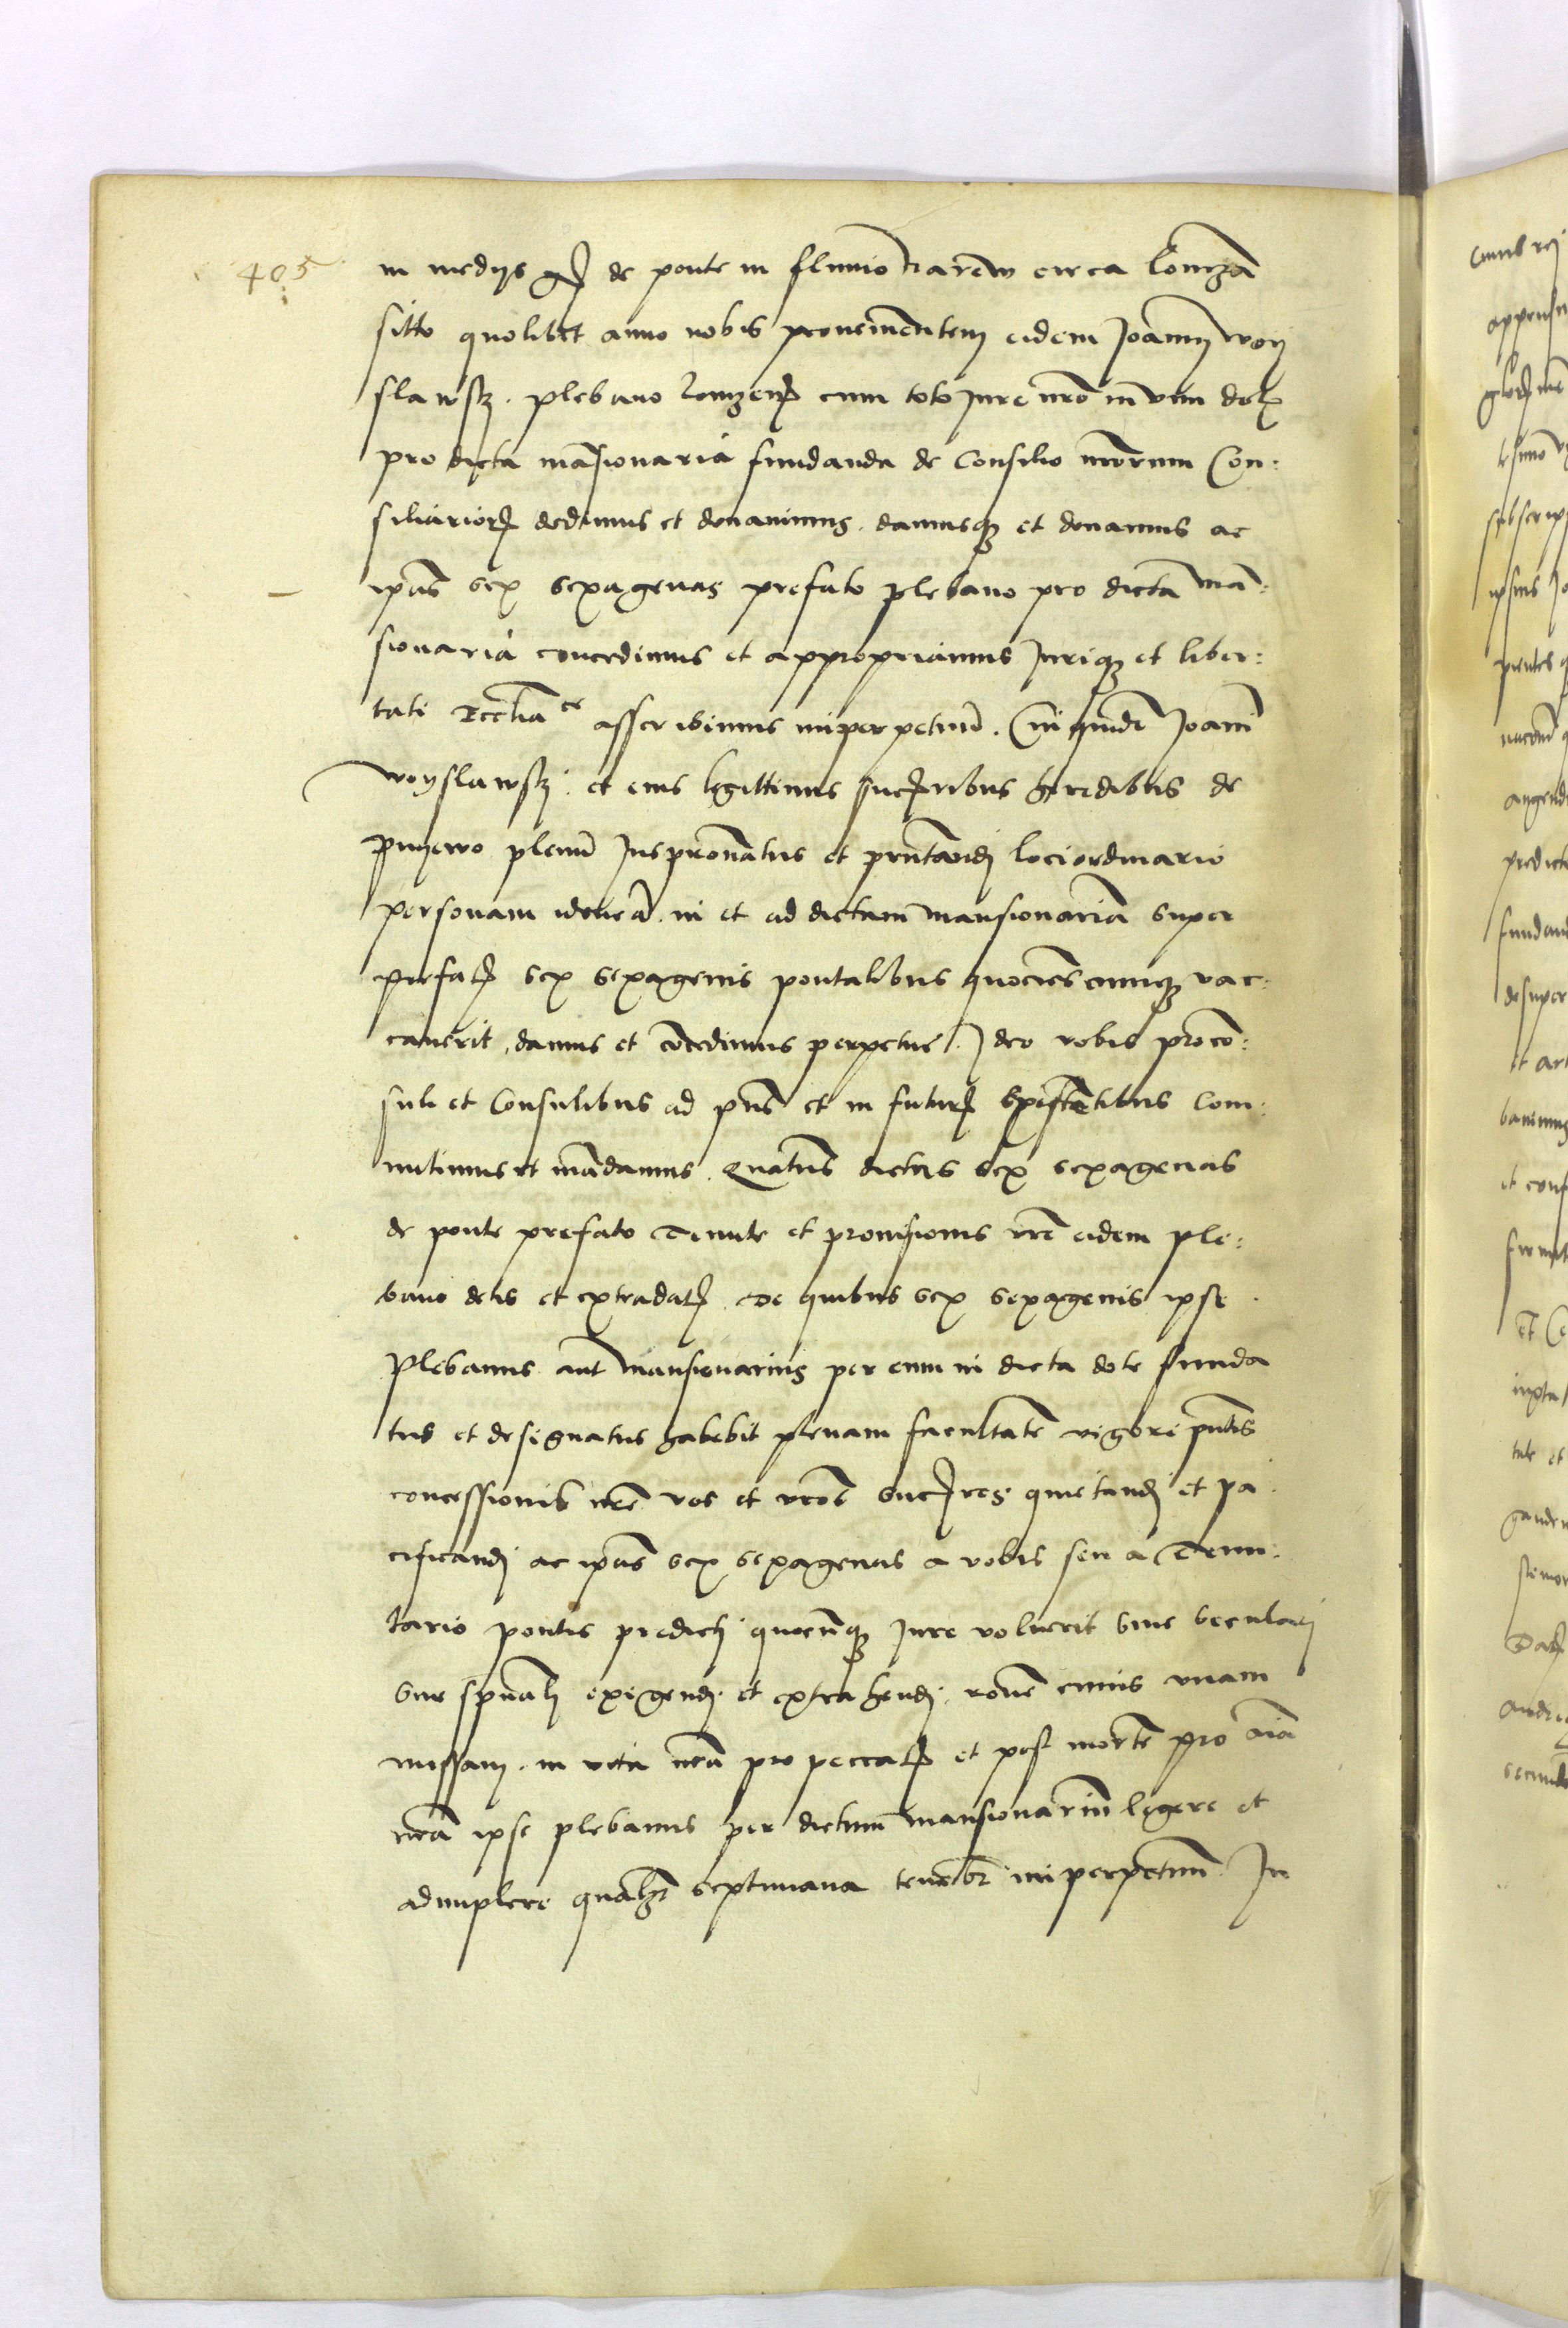 405
in medijs gr̃ de ponte in fluuio Narew circa Lomzã
sitto quolibet anno nobis prouenientem eidem Joanni woy
slawskj . plebano Lomzeñ cum toto Jure nr̃o in vim dotis
pro dicta mãsionaria fundanda de Consilio nr̃orum Con:
siliarior̃ dedimus et donauimus . damusq̃ et donamus ac
ip̃as sex sexagenas prefato plebano pro dicta man:
sionaria concedimus et appropriamus Juriq̃ et liber:
tati Eccl̃iaᶜᵉ asscribimus imperpetuũ . Cui quidẽ Joanni
woyslawskj . et eius legittimis suc̃ribus heredibus de
pnyewo plenũ Juspr̃onatus et pñtandj loci ordinario
personam idoneã . in et ad dictam mansionariã super
prefat̃ sex sexagenis pontalibus quociescumq̃ vac:
cauerit , damus et cõcedimus perpetue . Ideo vobis procõ:
suli et Consulibus ad pñs et in futur̃ existẽtibus Com:
mitimus et mãdamus . Quatũs dictas sex sexagenas
de ponte prefato Tenute et prouisionis vr̃e eidem ple:
bano detis et extradat̃ . De quibus sex sexagenis ipse
plebanus aut mansionarius per eum in dicta dote funda
tus et designatus habebit plenam facultatẽ vigore pñtis
concessionis nr̃e vos et vr̃os suc̃res quietandj et pa
cificandj ac ip̃as sex sexagenas a vobis seu a Tenu:
tario pontis predicti quocũq̃ Jure voluerit siue secularj
siue sp̃ualj exigendj . et extrahendj . rõne cuius vnam
missam . in vita nr̃a pro peccat̃ et post mortẽ pro aĩa
nr̃a ipse plebanus per dictum mansionariũ legere et
adimplere qual̃t septimana tenebr̃ imperpetuũ . In